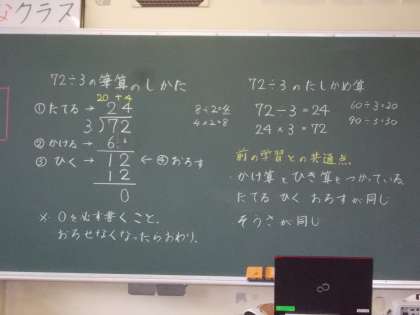 なクラス
72÷3の筆算のしかた
20 +4
① たてる → 24
3)72
② かける → 6
③ ひく → 12 ← ④おろす
12
0
※ 0を必ず書くこと。
おろせなくなったらおわり。
8÷2=4
4×2=8
72÷3のたしかめ算
72÷3=24
24×3=72
60÷3=20
90÷3=30
前の学習との共通点
・かけ算とひき算をつかっている。
たてる ひく おろすが同じ
そうさが同じ